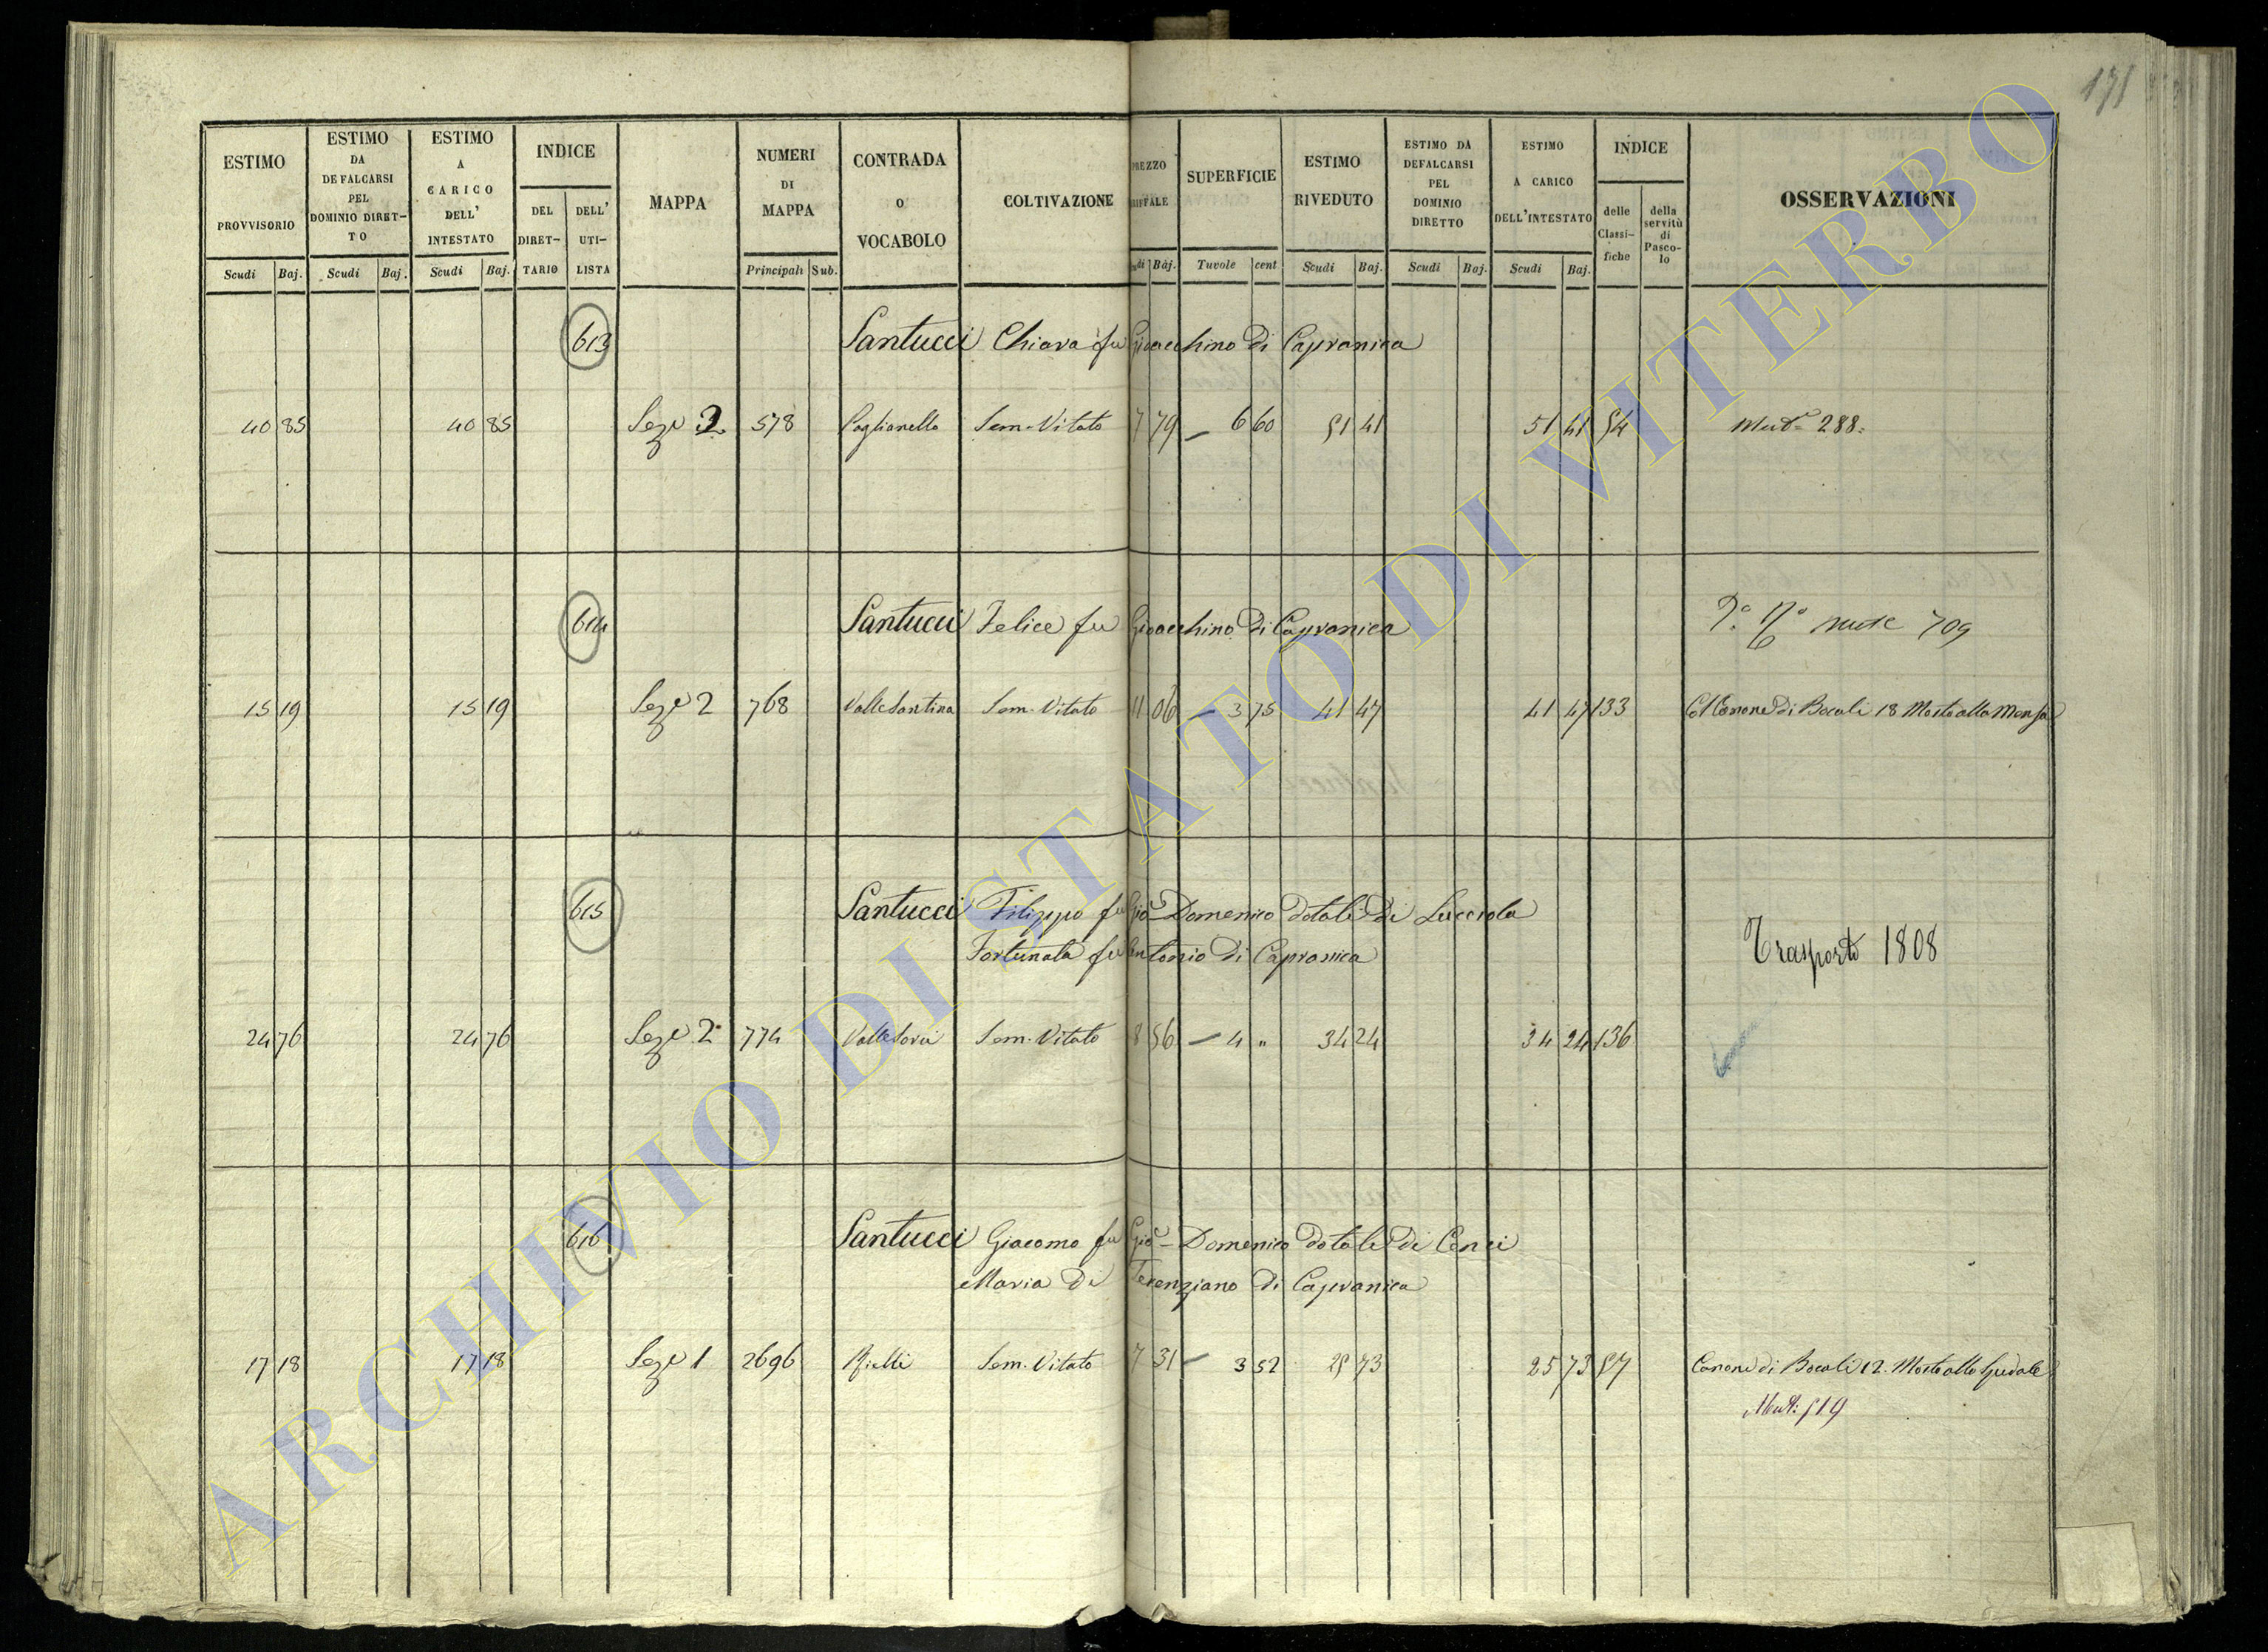 171
ESTIMO PROVVISORIO Scudi Baj.
ESTIMO DA DEFALCARSI PEL DOMINIO DIRETTO Scudi Baj.
ESTIMO A CARICO DELL' INTESTATO Scudi Baj.
INDICE DEL DIRETTARIO DELL' UTILISTA
MAPPA
NUMERI DI MAPPA Principali Sub.
CONTRADA O VOCABOLO
COLTIVAZIONE
PREZZO Baj.
SUPERFICIE Tavole cent
ESTIMO RIVEDUTO Scudi Baj.
ESTIMO DA DEFALCARSI PEL DOMINIO DIRETTO Scudi Baj.
ESTIMO A CARICO DELL'INTESTATO Scudi Baj.
INDICE delle Classifiche della servitù di Pascolo
OSSERVAZIONI
613 Santucci Chiara fu Gioacchino di Capranica
40 85 40 85 Seze 2 578 Poglianello Sem. Vitato 7 79 — 6 60 51 41 51 41 54 Mut. 288.
614 Santucci Felice fu Gioacchino di Capranica 709
15 19 15 19 Seze 2 768 Valle Santina Sem. Vitato 11 06 — 3 75 41 47 41 47 133 Canone di Bocali 18 Mosto alla Mensa
615 Santucci Filippo fu Gio Domenico dotali di Lucciola
Fortunata fu Antonio di Capranica
Trasporto 1808
24 76 24 76 Seze 2 774 Sem. Vitato 8 56 — 4 " 34 24 34 24 136
616 Santucci Giacomo fu Gio Domenico dotali di Cenci
Maria di Terenziano di Capranica
17 18 17 18 Seze 1 2696 Sem. Vitato 7 31 — 3 52 25 73 25 73 57 Canone di Bocali 12. Mosto allo Spedale
Mut: 519
ARCHIVIO DI STATO DI VITERBO